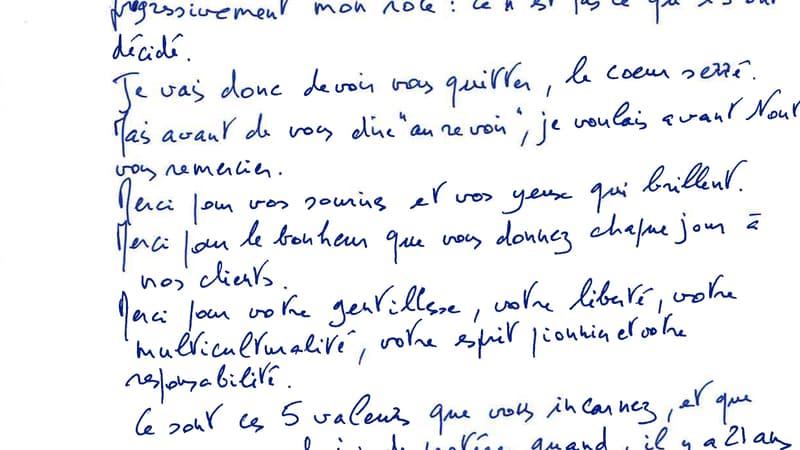 progressivement mon rôle : ce n'est pas ce qui
décidé.
Je vais donc devoir vous quitter, le coeur serré.
Mais avant de vous dire "au revoir", je voulais avant tout
vous remercier.
Merci pour vos sourires et vos yeux qui brillent.
Merci pour le bonheur que vous donnez chaque jour à
nos clients.
Merci pour votre gentillesse, votre liberté, votre
multiculturalité, votre esprit pionnier et votre
responsabilité.
Ce sont ces 5 valeurs que vous incarnez, et que
quand, il y a 21 ans